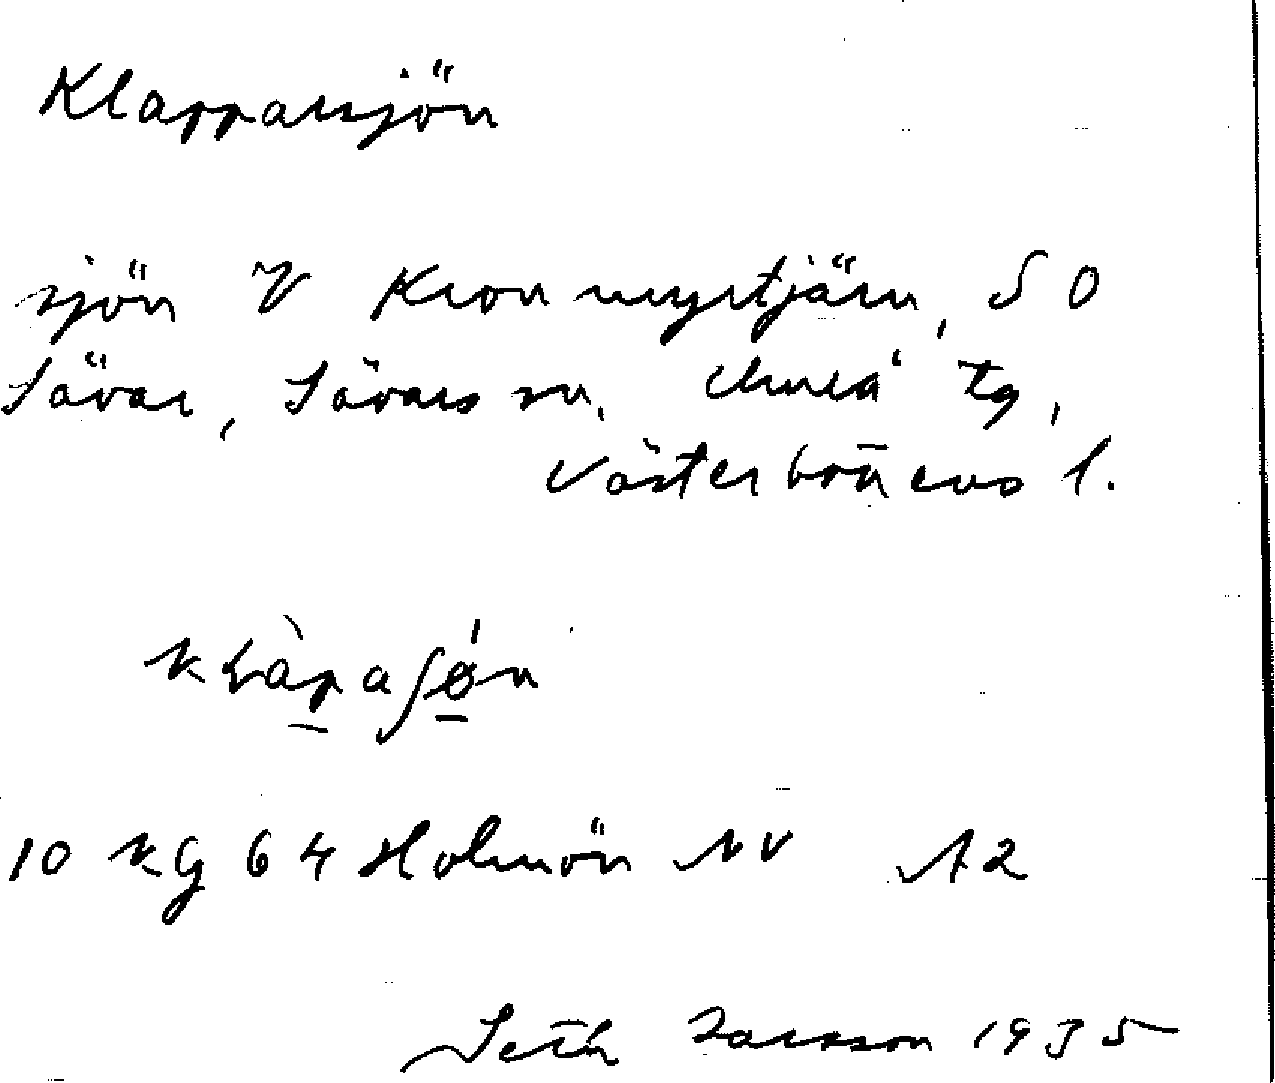 Klapparsjön
sjön V Kronmyrtjärn, SO
Sävar, Sävars sn, Umeå tg,
Västerbottens l.
10 KG 64 Holmön NV A2
Seth Larsson 1935